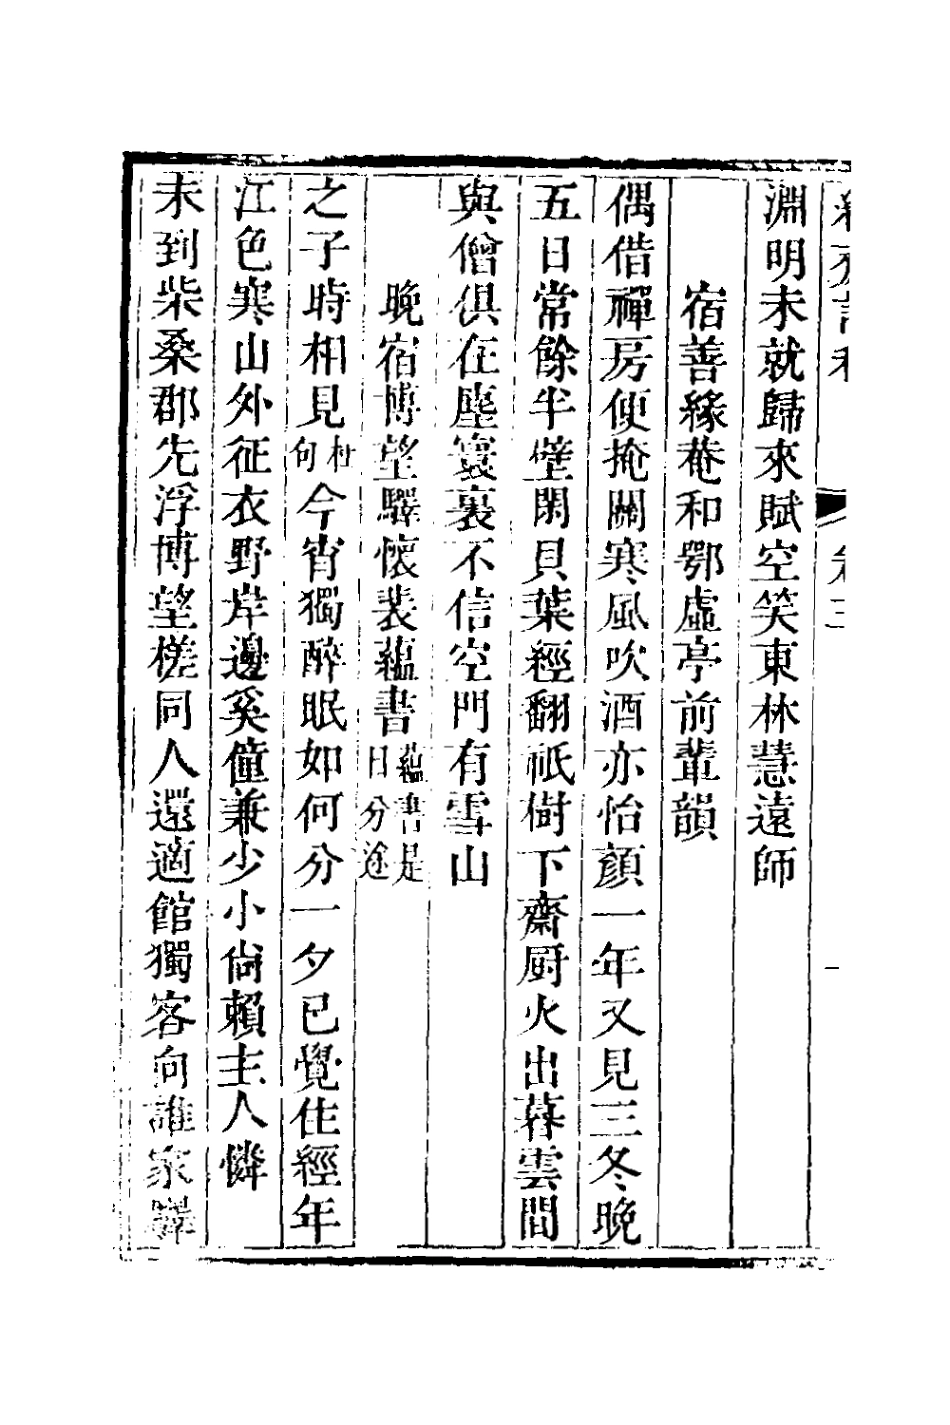 淵明未就歸來賦空笑東林慧遠師
宿善緣菴和鄂虛亭前輩韻
偶借禪房便掩關寒風吹酒亦怡顏一年又見三冬晚
五日常餘半璧閑貝葉經翻祇樹下齋厨火出暮雲間
與僧俱在塵寰裏不信空門有雪山
晚宿博望驛懷裴蘊書蘊書是日分途
之子時相見杜句今宵獨醉眠如何分一夕已覺住經年
江色寒山外征衣野岸邊奚僮兼少小尙賴主人憐
未到柴桑郡先浮博望槎同人還適館獨客向誰家驛